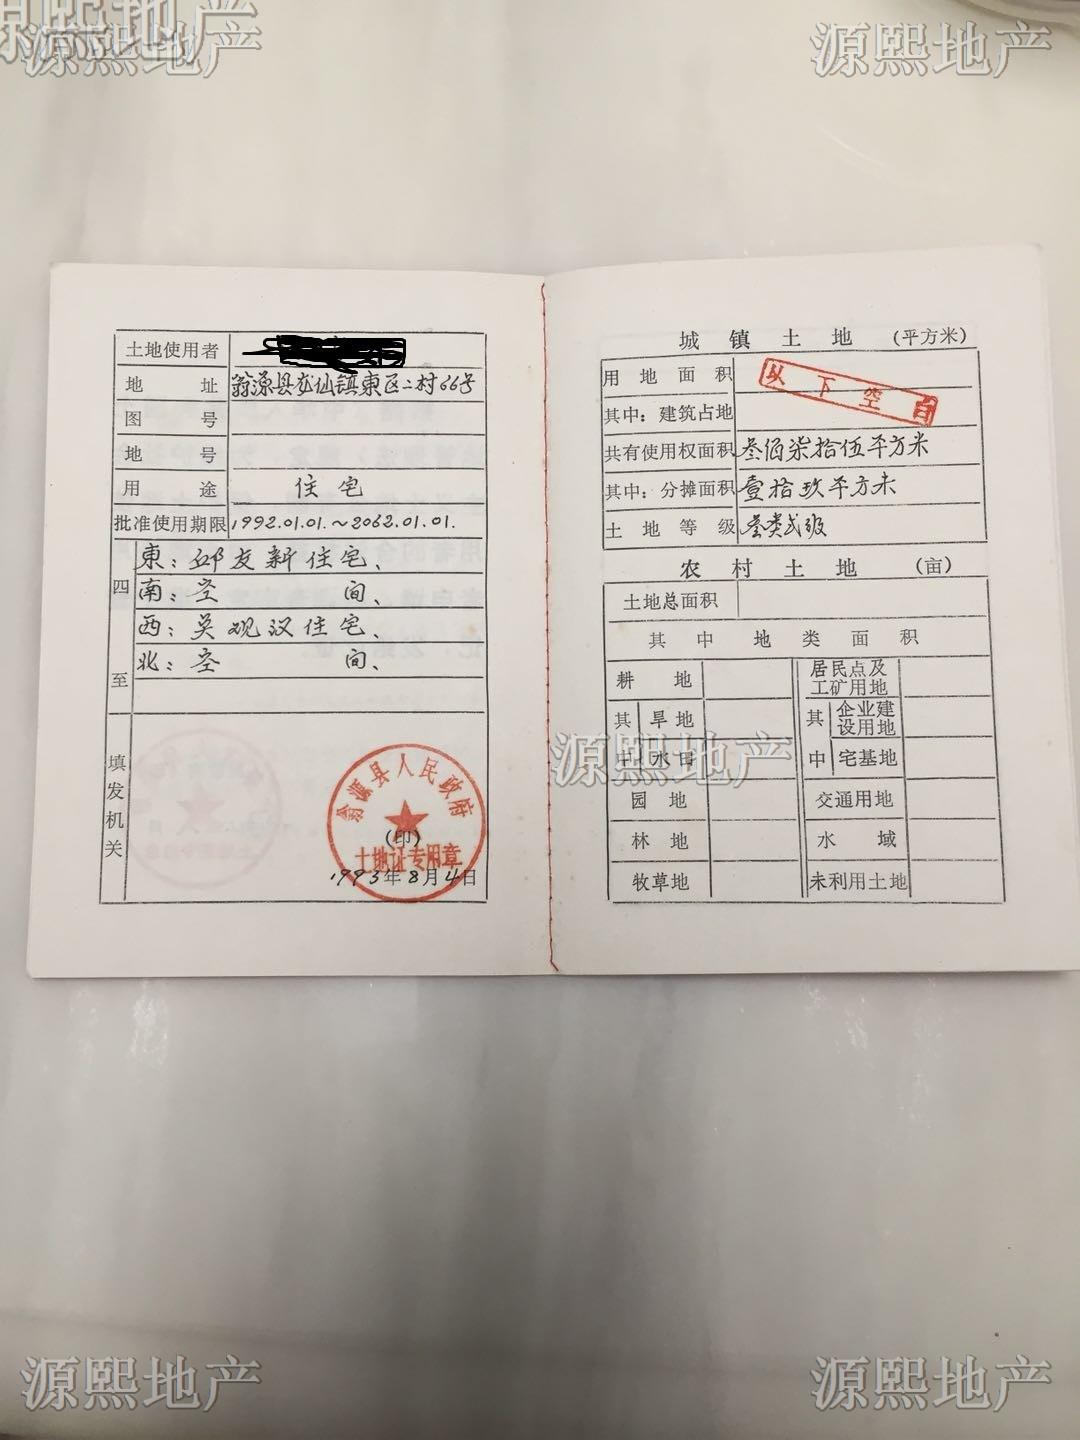 源熙地产
源熙地产
源熙地产
土地使用者
地址 翁源县龙仙镇東区二村66号
图号
地号
用途 住宅
批准使用期限 1992.01.01.～2062.01.01.
四至
東：邱友新住宅、
南：空间、
西：吴观汉住宅、
北：空间、
填发机关
翁源县人民政府
(印)
土地证专用章
1993年8月4日
城镇土地 (平方米)
用地面积
以下空白
其中：建筑占地
共有使用权面积 叁佰柒拾伍平方米
其中：分摊面积 壹拾玖平方米
土地等级 叁类弍级
农村土地 (亩)
土地总面积
其中地类面积
耕地 居民点及工矿用地
其中 旱地 其中 企业建设用地
水田 宅基地
源熙地产
园地 交通用地
林地 水域
牧草地 未利用土地
源熙地产
源熙地产